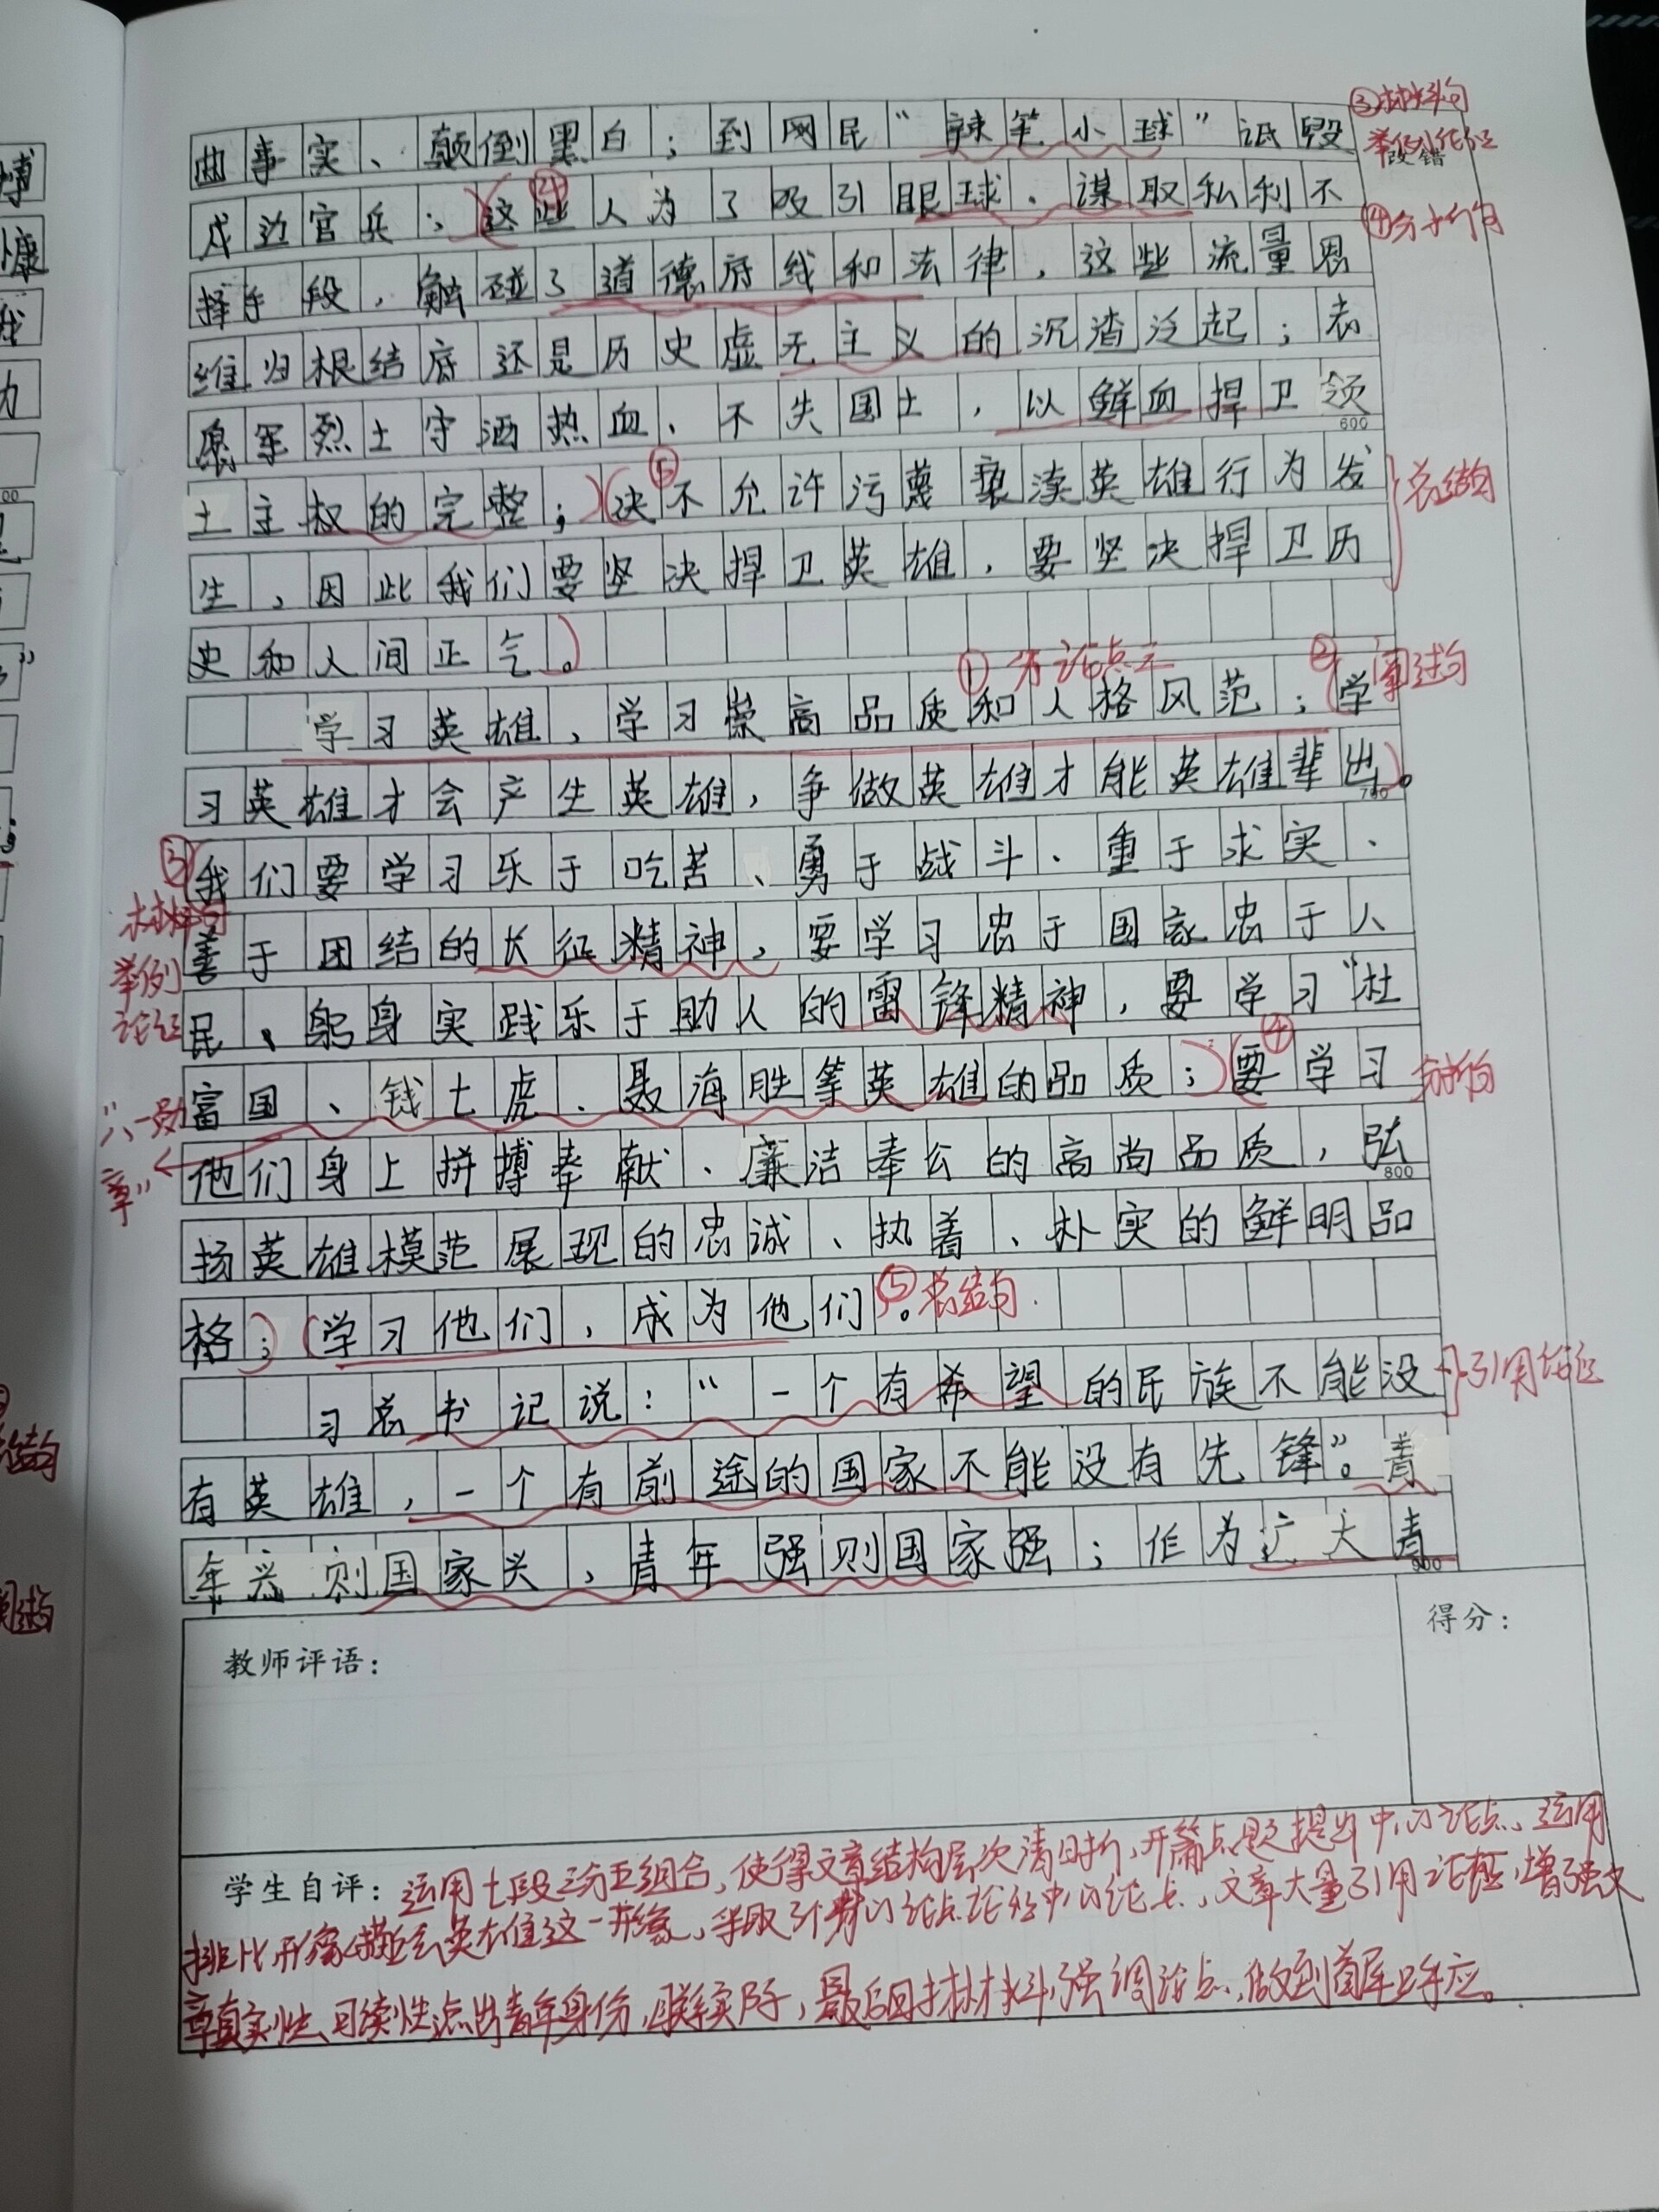 曲事实、颠倒黑白；到网民“辣笔小球”诋毁
③材料句
举例论证
改错
戍边官兵；这些人为了吸引眼球、谋取私利不
④
④分析句
择手段，触碰了道德底线和法律，这些流量思
维归根结底还是历史虚无主义的沉渣泛起；志
愿军烈士守洒热血、不失国土，以鲜血捍卫领
600
土主权的完整；决不允许污蔑亵渎英雄行为发
⑤
总结句
生，因此我们要坚决捍卫英雄，要坚决捍卫历
史和人间正气。
①分论点三
②阐述句
学习英雄，学习崇高品质和人格风范；学
习英雄才会产生英雄，争做英雄才能英雄辈出。
700
③
我们要学习乐于吃苦、勇于战斗、重于求实、
材料句
举例
论证
善于团结的长征精神，要学习忠于国家忠于人
民、躬身实践乐于助人的雷锋精神，要学习“杜
④
富国、钱七虎、聂海胜等英雄的品质；要学习
分析句
“八一勋
章”
他们身上拼搏奉献、廉洁奉公的高尚品质，弘
800
扬英雄模范展现的忠诚、执着、朴实的鲜明品
格；学习他们，成为他们。
⑤总结句
习总书记说：“一个有希望的民族不能没
引用论证
有英雄，一个有前途的国家不能没有先锋”。青
年兴则国家兴，青年强则国家强；作为广大青
900
教师评语：
得分：
学生自评：运用七段三分五组合，使得文章结构层次清晰，开篇点题提出中心论点、运用
排比形象描绘英雄这一形象，采取3个分论点论经中心论点，文章大量引用论据，增强文
章真实性、可续性点出青年身份，联系实际，最后回扣材料强调论点，做到首尾呼应。